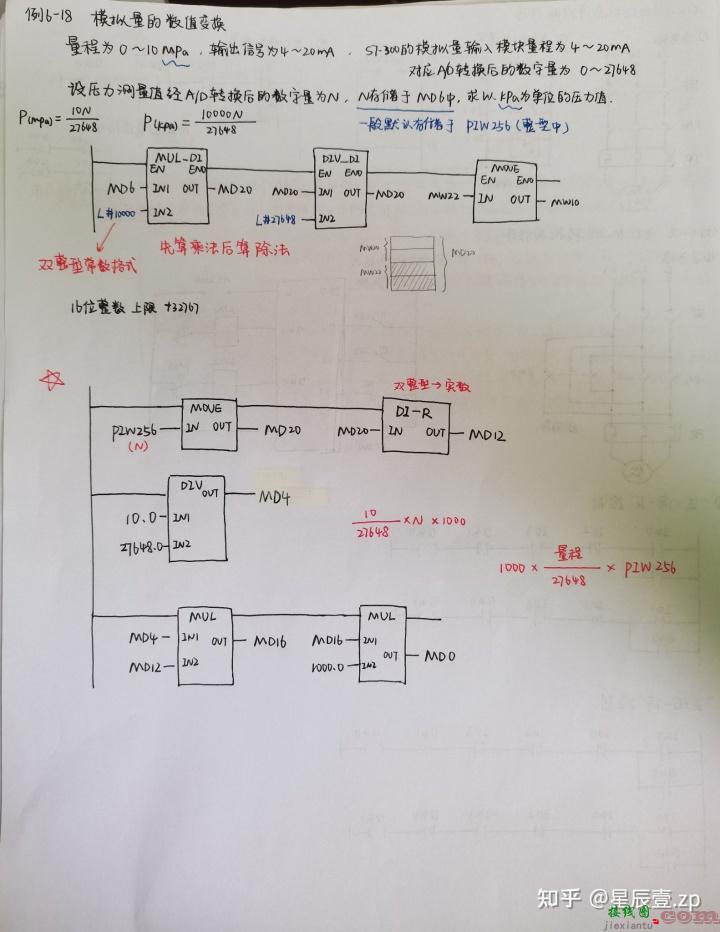 例6-18 模拟量的数值变换
量程为0～10MPa，输出信号为4～20mA，S7-300的模拟量输入模块量程为4～20mA
对应A/D转换后的数字量为0～27648
设压力测量值经A/D转换后的数字量为N，N存储于MD6中，求以kPa为单位的压力值.
P(mpa)=10N/27648 P(kpa)=10000N/27648 一般默认存储于 PIW256(整型中)
MUL-DI DIV_DI MOVE
EN ENO EN ENO EN ENO
MD6 IN1 OUT MD20 MD20 IN1 OUT MD20 MW22 IN OUT MW10
L#10000 IN2 L#27648 IN2
双整型常数格式 先算乘法后算除法
MW20 MD20
MW22
16位整数 上限 +32767
双整型→实数
MOVE DI-R
PIW256 IN OUT MD20 MD20 IN OUT MD12
(N)
DIV
OUT MD4
10.0 IN1
27648.0 IN2
10/27648 ×N ×1000
1000 × 量程/27648 × PIW256
MUL MUL
MD4 IN1 OUT MD16 MD16 IN1
MD12 IN2 OUT MD0
1000.0 IN2
知乎 @星辰壹.zp
接线图
jiexiantu
.com